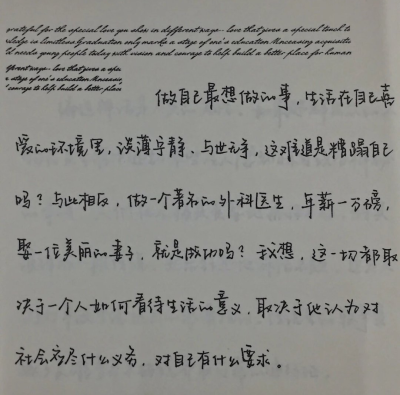 grateful for the special love you show in different ways-- love that gives a special touch to
Lodge is limitless Graduation only marks a stage of one's education Unceasing acquisitio
ld needs young people today with vision and courage to help build a better place for human
fferent ways-- love that gives a spe
a stage of one's education Unceasin
courage to help build a better place
做自己最想做的事，生活在自己喜
爱的环境里，淡薄宁静、与世无争，这难道是糟蹋自己
吗？与此相反，做一个著名的外科医生，年薪一万磅，
娶一位美丽的妻子，就是成功吗？我想，这一切都取
决于一个人如何看待生活的意义，取决于他认为对
社会应尽什么义务，对自己有什么要求。